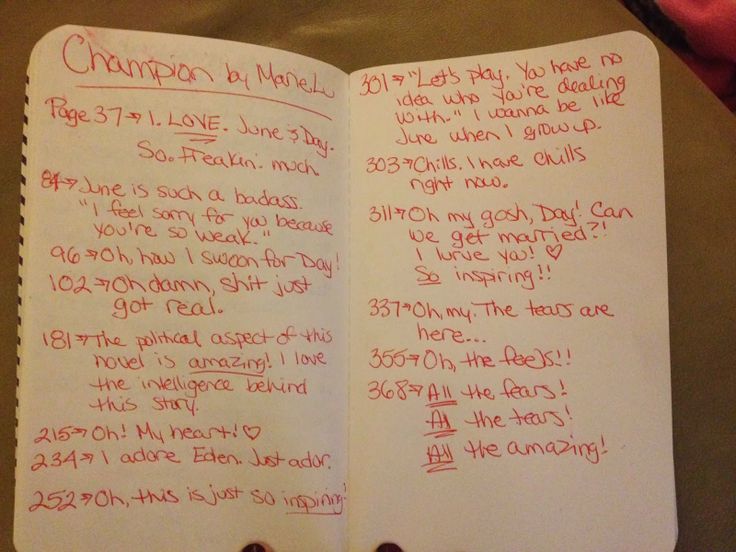 Champion by Marie Lu
Page 37→ I. LOVE. June & Day.
So. Freakin'. much
84→ June is such a badass.
"I feel sorry for you because
you're so weak."
96→ Oh, how I swoon for Day!
102→ Oh damn, shit just
got real.
181→ The political aspect of this
novel is amazing! I love
the intelligence behind
this story.
215→ Oh! My heart! ♡
234→ I adore Eden. Just ador.
252→ Oh, this is just so inspiring!
301→ "Let's play. You have no
idea who you're dealing
with." I wanna be like
June when I grow up.
303→ Chills. I have chills
right now.
311→ Oh my gosh, Day! Can
we get married?!
I lurve you! ♡
So inspiring!!
337→ Oh, my. The tears are
here...
355→ Oh, the feels!!
368→ All the fears!
All the tears!
All the amazing!